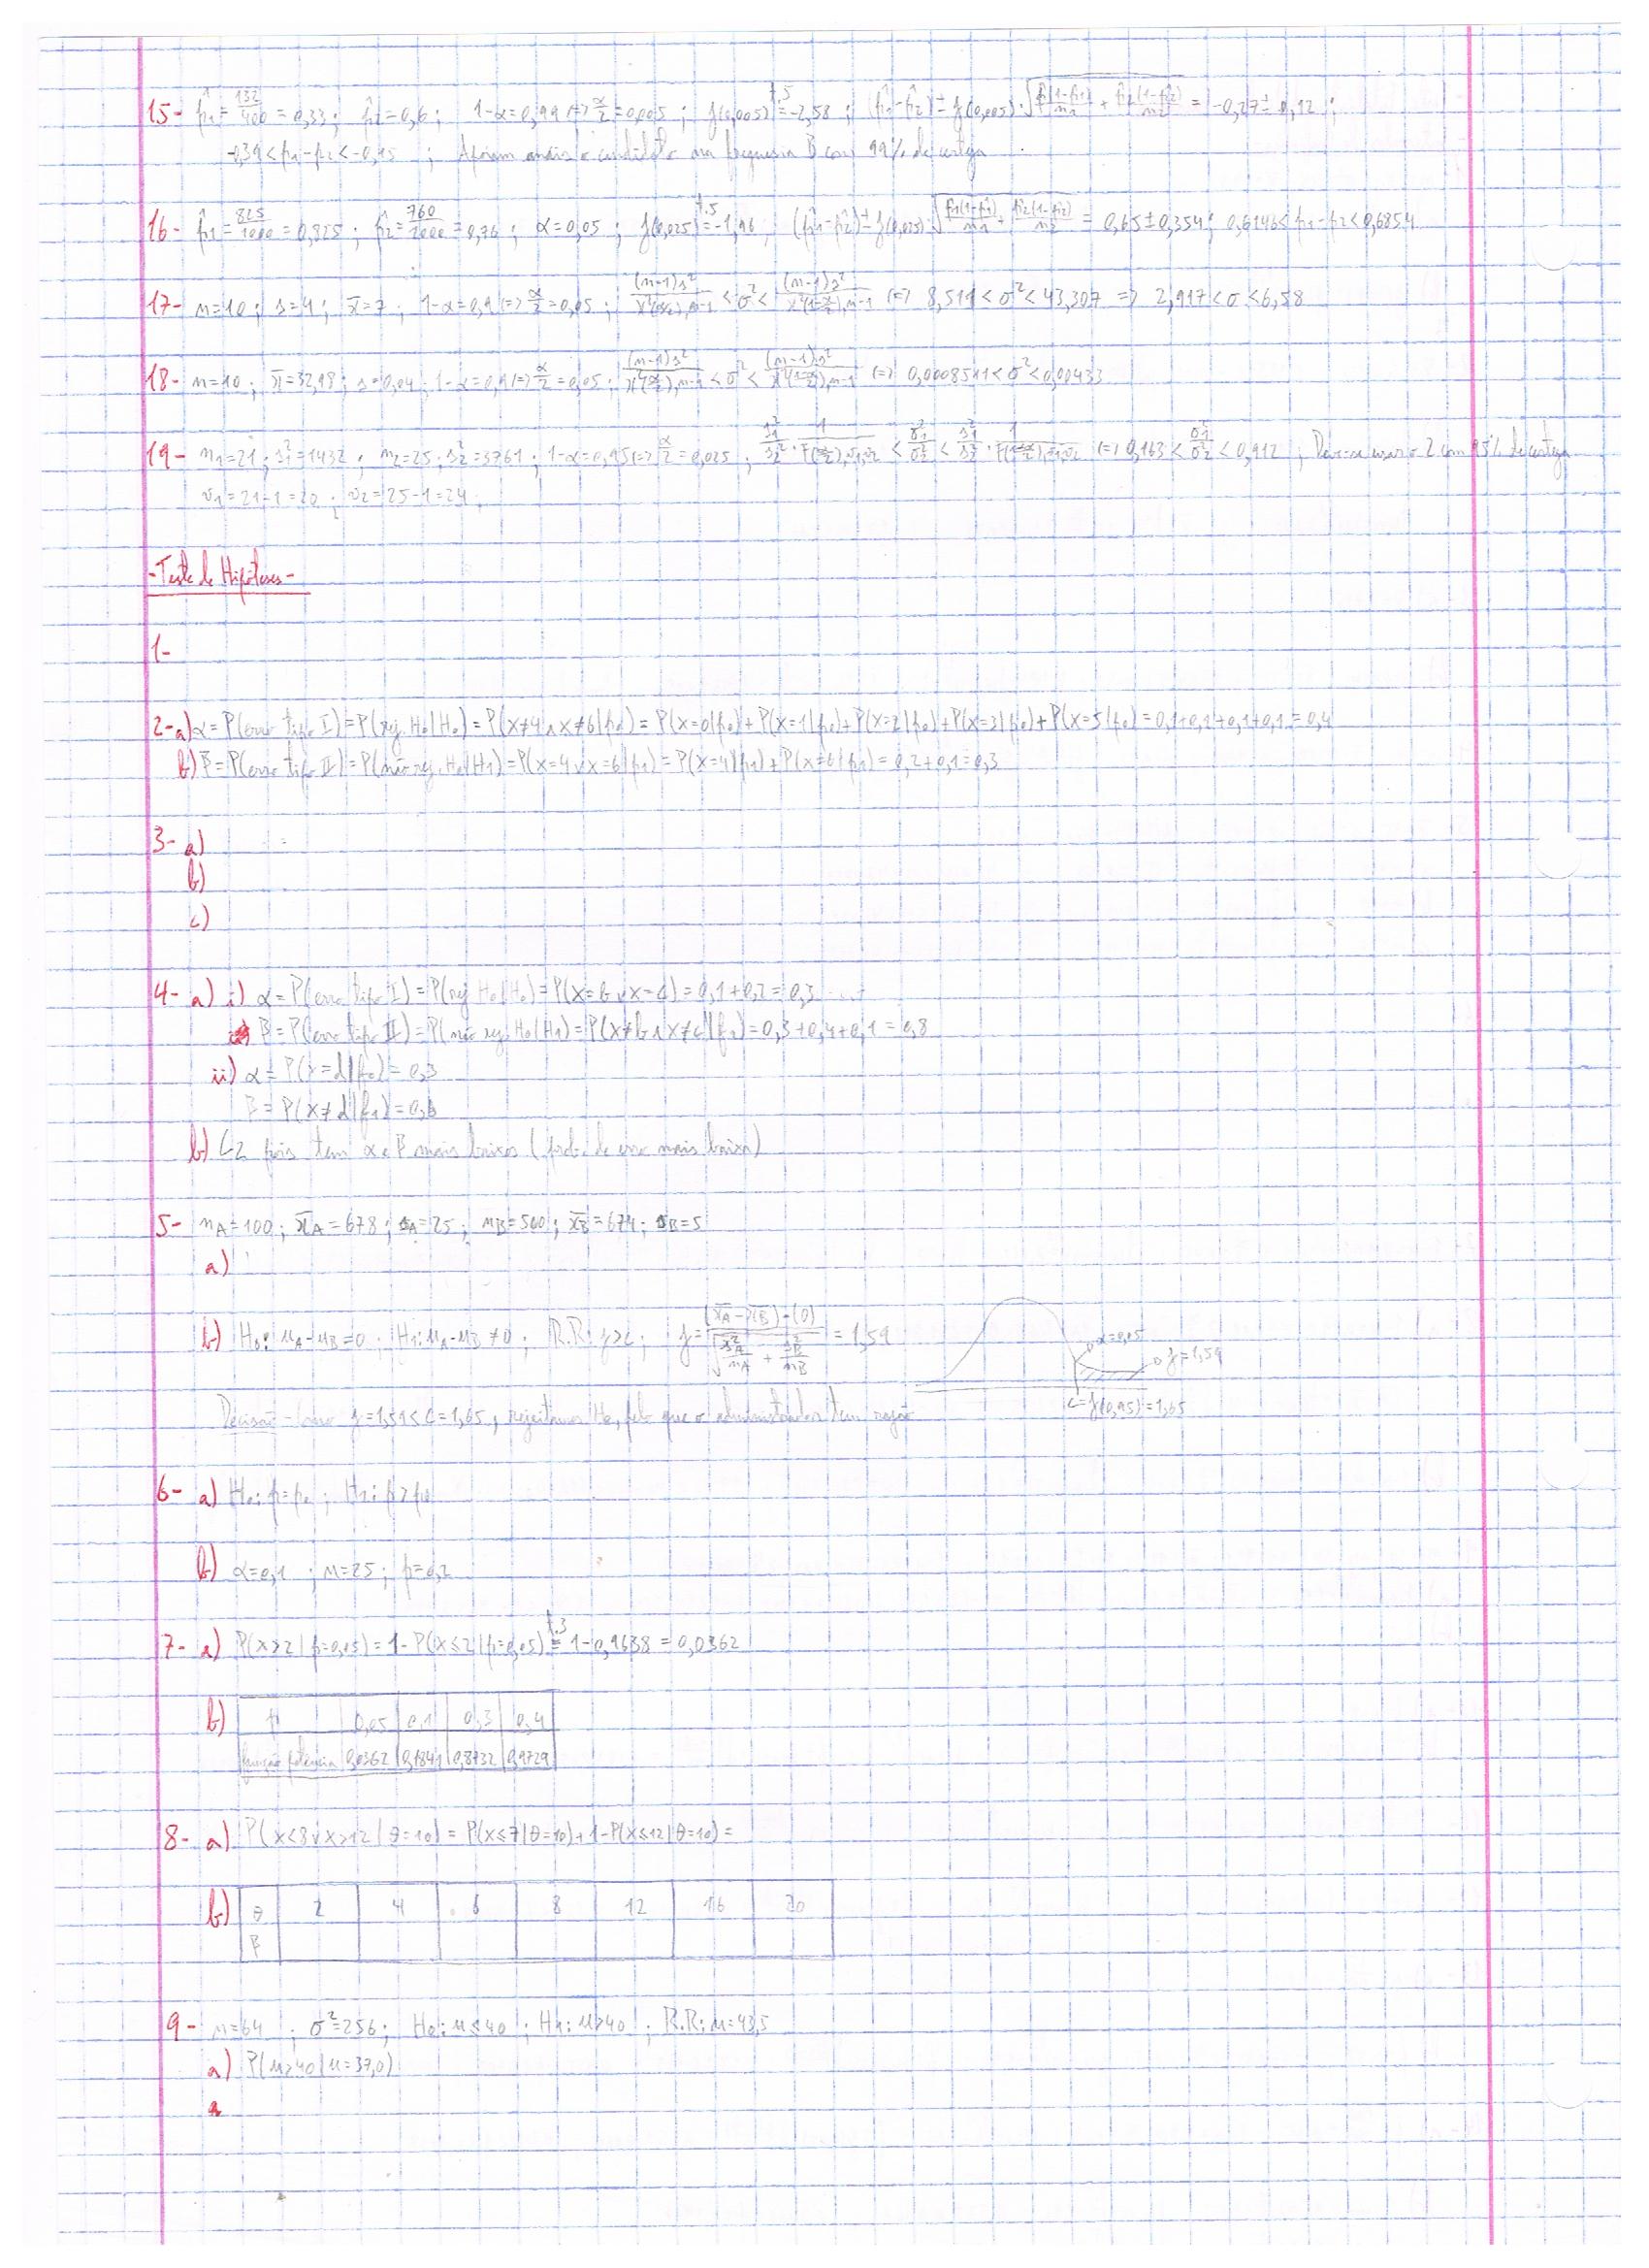 15- p̂1 = 132/400 = 0,33 ; p̂2 = 0,6 ; 1-α = 0,99 (=) α/2 = 0,005 ; z(0,005) =^{t.5} -2,58 ; (p̂1-p̂2) ± z(0,005)·√(p̂1(1-p̂1)/n1 + p̂2(1-p̂2)/n2) = -0,27 ± 0,12 ;
-0,39 < p1-p2 < -0,15 ; Apoiam mais o candidato na freguesia B com 99% de certeza.
16- p̂1 = 825/1000 = 0,825 ; p̂2 = 760/1000 = 0,76 ; α = 0,05 ; z(0,025) =^{t.5} -1,96 ; (p̂1-p̂2) ± z(0,025)·√(p̂1(1-p̂1)/n1 + p̂2(1-p̂2)/n2) = 0,65 ± 0,354 ; 0,6146 < p1-p2 < 0,6854
17- n=10 ; s=4 ; x̄=7 ; 1-α=0,9 (=) α/2=0,05 ; (n-1)s²/χ²(α/2),n-1 < σ² < (n-1)s²/χ²(1-α/2),n-1 (=) 8,511 < σ² < 43,307 => 2,917 < σ < 6,58
18- n=10 ; x̄=32,98 ; s=0,04 ; 1-α=0,9 (=) α/2=0,05 ; (n-1)s²/χ²(α/2),n-1 < σ² < (n-1)s²/χ²(1-α/2),n-1 (=) 0,0008511 < σ² < 0,00433
19- n1=21 ; s1²=1432 ; n2=25 ; s2²=3761 ; 1-α=0,95 (=) α/2=0,025 ; s1²/s2² · 1/F(α/2),v1,v2 < σ1²/σ2² < s1²/s2² · 1/F(1-α/2),v1,v2 (=) 0,163 < σ1²/σ2² < 0,912 ; Deve-se usar o 2 com 95% de certeza
v1=21-1=20 ; v2=25-1=24 ;
-Teste de Hipóteses-
1-
2- a) α = P(erro tipo I) = P(rej. H0|H0) = P(X≠4 ∧ X≠6|p0) = P(X=0|p0) + P(X=1|p0) + P(X=2|p0) + P(X=3|p0) + P(X=5|p0) = 0,1+0,1+0,1+0,1 = 0,4
b) β = P(erro tipo II) = P(não rej. H0|H1) = P(X=4 ∨ X=6|p1) = P(X=4|p1) + P(X=6|p1) = 0,2+0,1 = 0,3
3- a)
b)
c)
4- a) i) α = P(erro tipo I) = P(rej H0|H0) = P(X=b ∨ X=c) = 0,1+0,2 = 0,3
β = P(erro tipo II) = P(não rej. H0|H1) = P(X≠b ∧ X≠c|f1) = 0,3+0,4+0,1 = 0,8
ii) α = P(X=d|f0) = 0,3
β = P(X≠d|f1) = 0,6
b) C2 pois tem α e β mais baixos (prob. de erro mais baixa)
5- nA=100 ; x̄A=678 ; sA=25 ; nB=500 ; x̄B=674 ; sB=5
a)
b) H0: μA-μB=0 ; H1: μA-μB≠0 ; R.R: z>c ; z = ((x̄A-x̄B)-(0))/√(sA²/nA + sB²/nB) = 1,59
α=0,05
z=1,59
c=z(0,95)=1,65
Decisão - como z=1,59 < c=1,65, rejeitamos H0, pelo que o administrador tem razão
6- a) H0: p=p0 ; H1: p>p0
b) α=0,1 ; n=25 ; p=0,2
7- a) P(X>2|p=0,05) = 1-P(X≤2|p=0,05) =^{t.3} 1-0,9638 = 0,0362
b) p 0,05 0,1 0,3 0,4
função potência 0,0362 0,1841 0,8732 0,9729
8- a) P(X<8 ∨ X>12|θ=10) = P(X≤7|θ=10) + 1-P(X≤12|θ=10) =
b) θ 2 4 6 8 12 16 20
β
9- n=64 ; σ²=256 ; H0: μ≤40 ; H1: μ>40 ; R.R: μ=43,5
a) P(μ>40|μ=37,0)